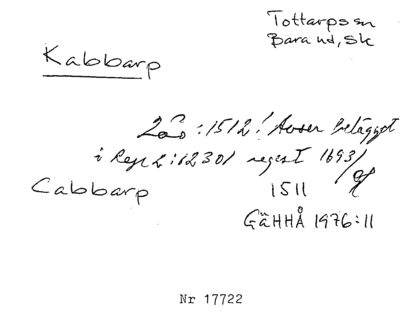 Tottarps sn
Bara hd, Sk
Kabbarp
:1512! Avser belägget
i Rep 2:12301 regest 1693/
Cabbarp 1511
GäHHÅ 1976:11
Nr 17722